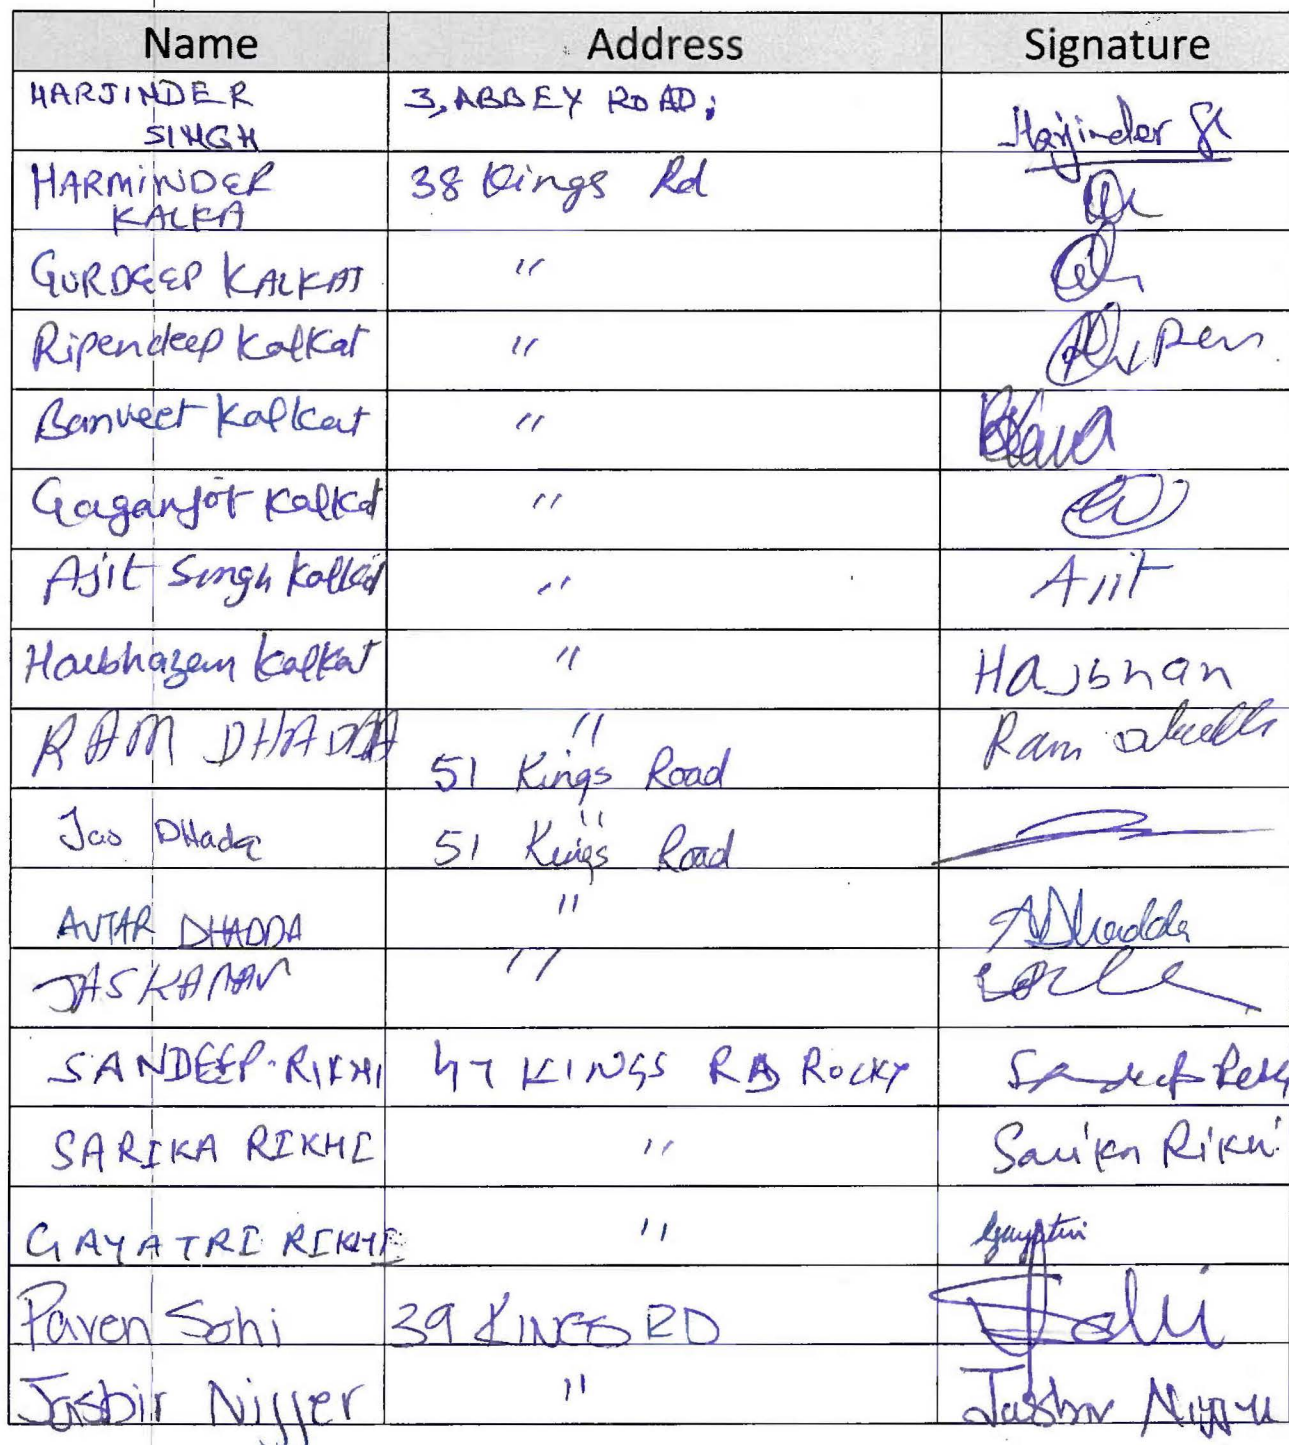 Name Address Signature
HARJINDER SINGH 3, ABBEY ROAD, Harjinder
HARMINDER KALKA 38 Kings Rd
GURDEEP KALKAT "
Ripendeep Kalkat " Ripen
Banveet Kalkat "
Gaganjot Kalkat "
Ajit Singh Kalkat " Ajit
Kalkat "
RAM DHADDA " Ram
51 Kings Road
Jas DHada "
51 Kings Road
AVTAR DHADDA " ADhadda
JASKARAN "
SANDEEP RIKHI 47 KINGS RD ROCKY Sandeep
SARIKA RIKHI " Sarika Rikhi
GAYATRI RIKHI " Gayatri
Paven Sohi 39 KINGS RD Sohi
Jasbir Nijjer " Jasbir